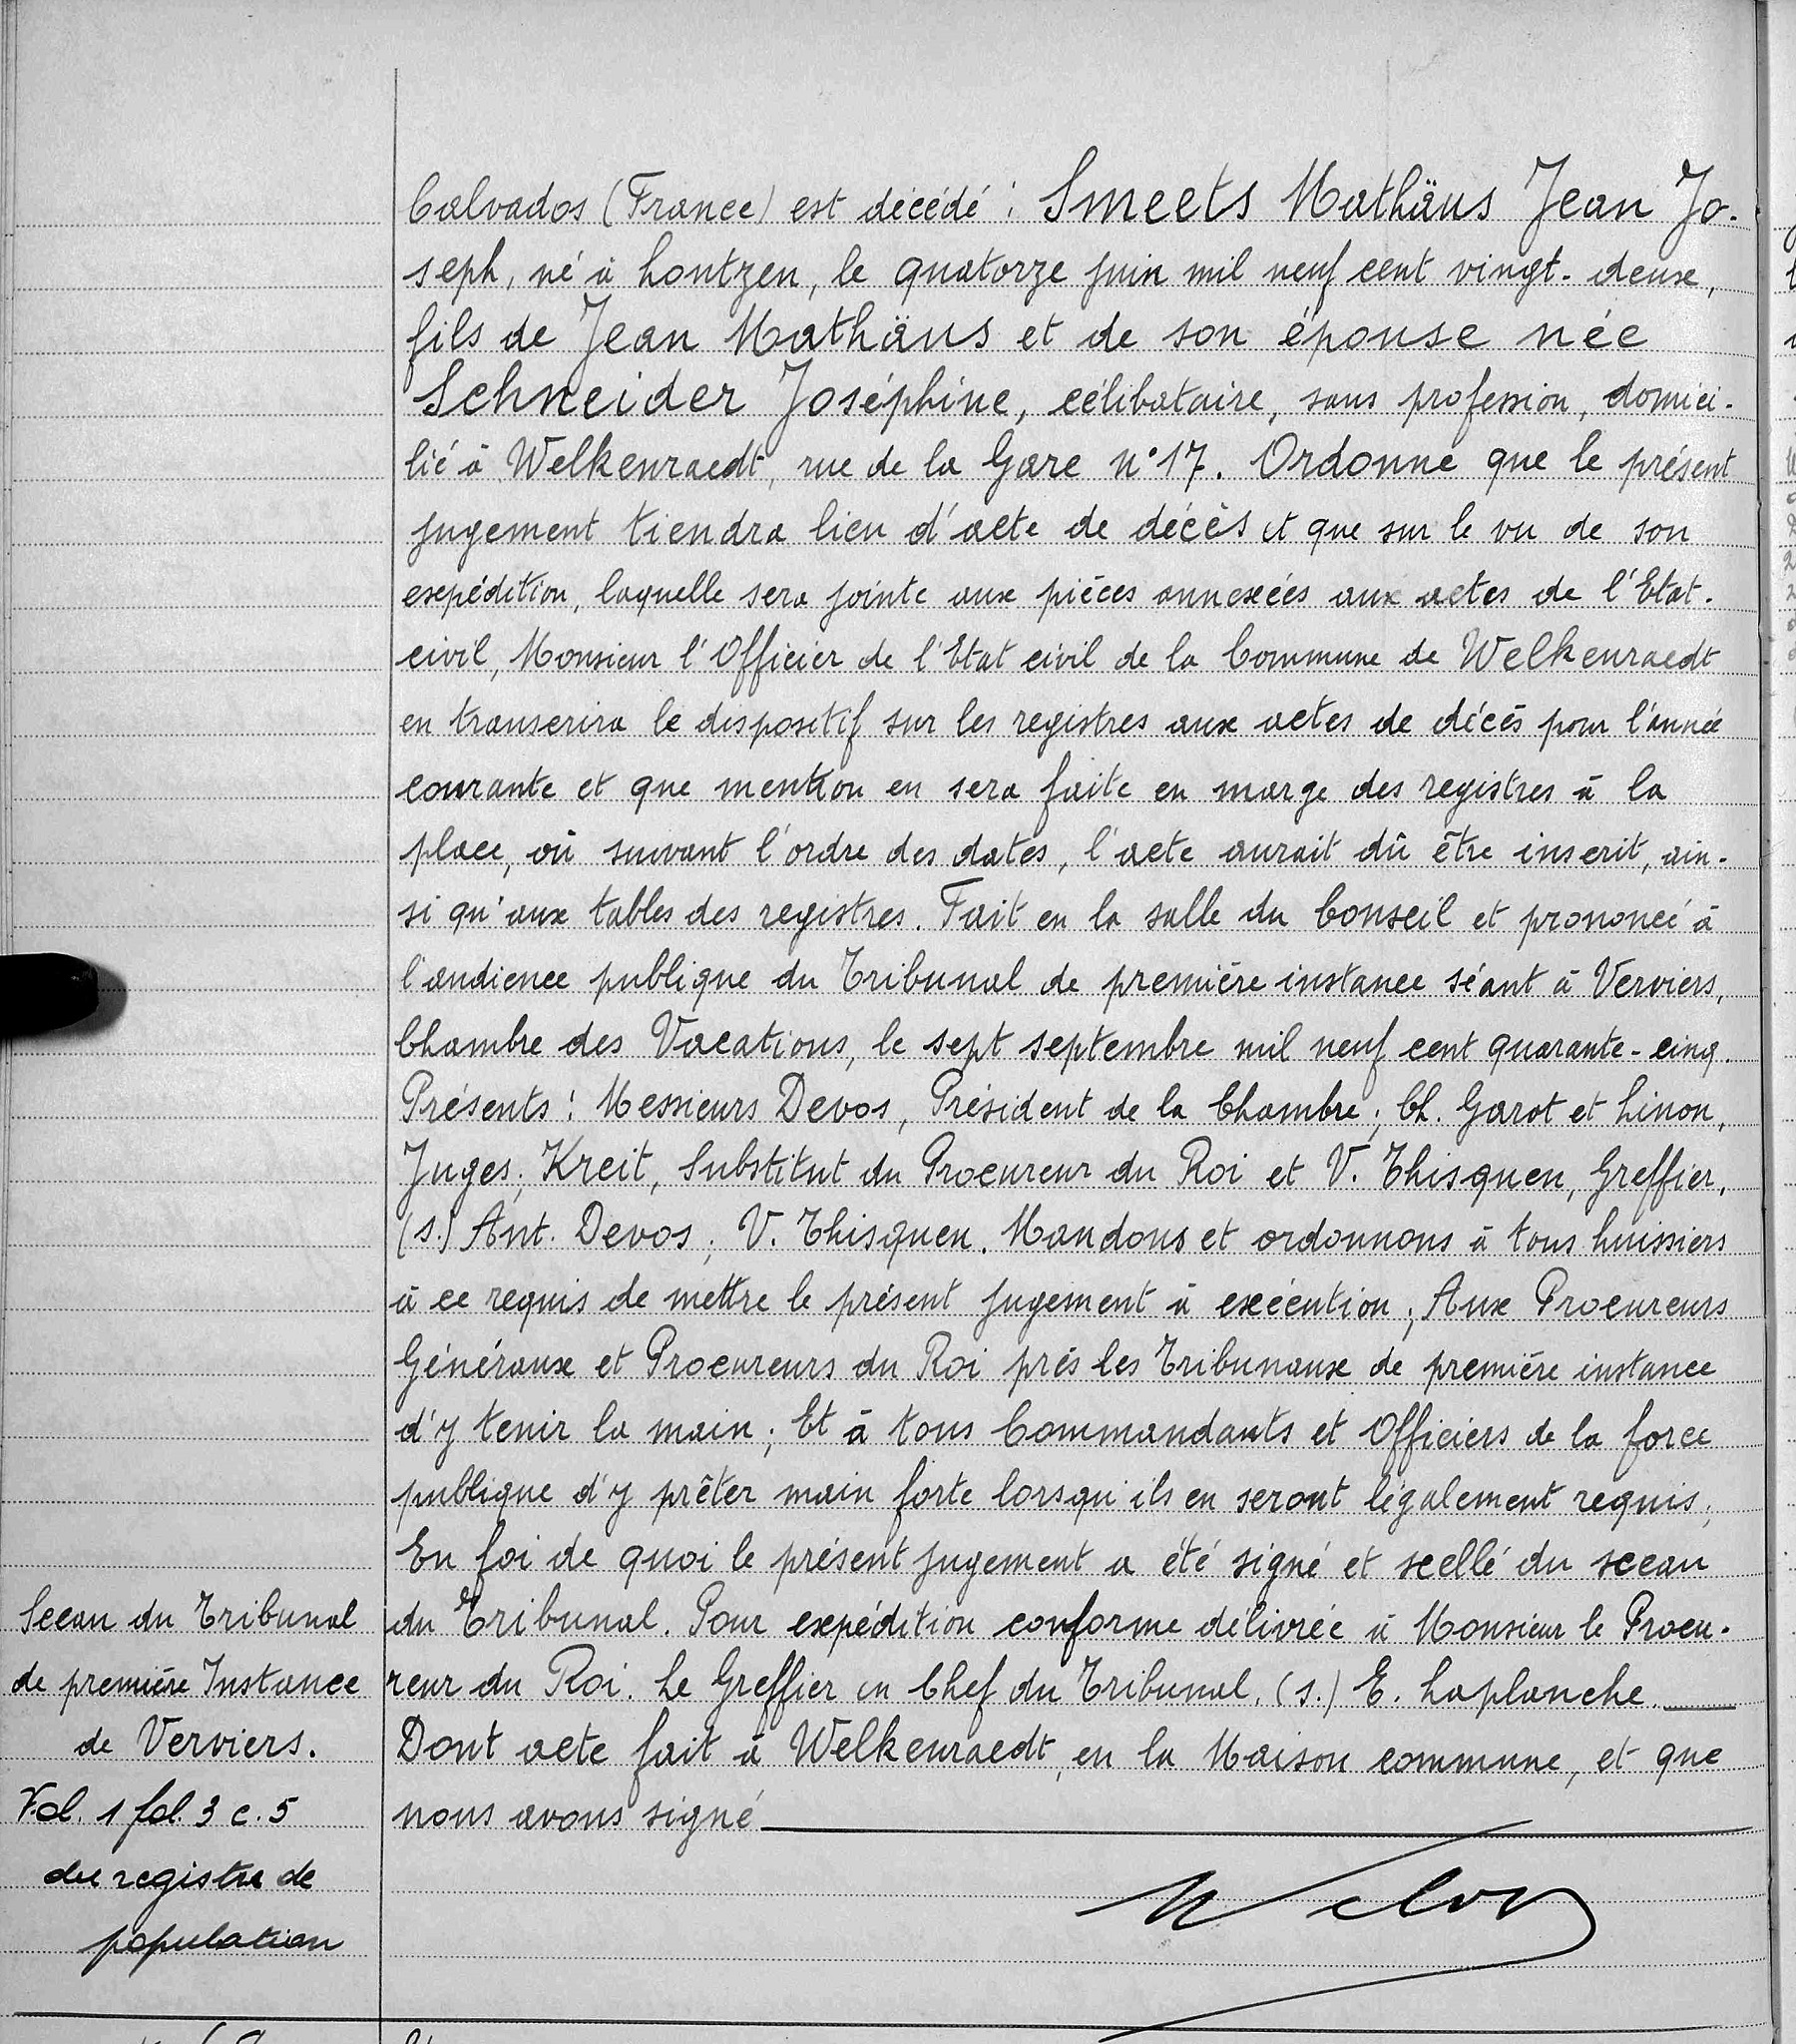 Calvados (France) est décédé : Smeets Mathäus Jean Jo-
seph, né à Lontzen, le quatorze juin mil neuf cent vingt-deux,
fils de Jean Mathäus et de son épouse née
Schneider Joséphine, célibataire, sans profession, domici-
lié à Welkenraedt, rue de la Gare n° 17. Ordonne que le présent
jugement tiendra lieu d'acte de décès et que sur le vu de son
expédition, laquelle sera jointe aux pièces annexées aux actes de l'Etat-
civil, Monsieur l'Officier de l'Etat civil de la Commune de Welkenraedt
en transcrira le dispositif sur les registres aux actes de décès pour l'année
courante et que mention en sera faite en marge des registres à la
place, où suivant l'ordre des dates, l'acte aurait dû être inscrit, ain-
si qu'aux tables des registres. Fait en la salle du Conseil et prononcé à
l'audience publique du Tribunal de première instance séant à Verviers,
Chambre des Vacations, le sept septembre mil neuf cent quarante-cinq.
Présents : Messieurs Devos, Président de la Chambre ; Ch. Garot et Linon,
Juges ; Kreit, Substitut du Procureur du Roi et V. Thisquen, Greffier.
(s.) Ant. Devos ; V. Thisquen. Mandons et ordonnons à tous huissiers
à ce requis de mettre le présent jugement à exécution ; Aux Procureurs
Généraux et Procureurs du Roi près les Tribunaux de première instance
d'y tenir la main ; Et à tous Commandants et Officiers de la force
publique d'y prêter main forte lorsqu'ils en seront légalement requis ;
En foi de quoi le présent jugement a été signé et scellé du sceau
Sceau du Tribunal
de première Instance
de Verviers.
du Tribunal. Pour expédition conforme délivrée à Monsieur le Procu-
reur du Roi. Le Greffier en Chef du Tribunal, (s.) E. Laplanche
Dont acte fait à Welkenraedt, en la Maison commune, et que
nous avons signé
Vol. 1 fol. 3 c. 5
du registre de
population